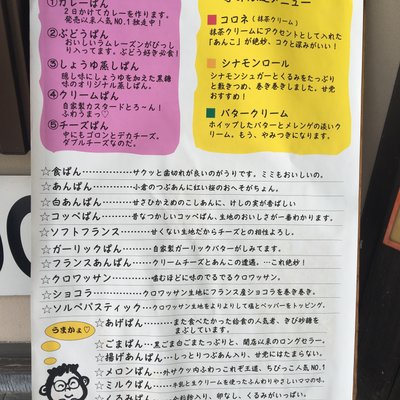 ①カレーぱん
2日かけてカレーを作ります。
発売以来人気NO.1独走中!
②ぶどうぱん
おいしいラムレーズンがびっしり
入ってます。ぶどう好き必食!
③しょうゆ蒸しぱん
隠し味にしょうゆを加えた黒糖
味のオリジナル蒸しぱん。
④クリームぱん
自家製カスタードとろ〜ん!
ふわうまっ♡
⑤チーズぱん
中にもゴロンとデカチーズ。
ダブルチーズなのだ。
コロネ(抹茶クリーム)
抹茶クリームにアクセントとして入れた
「あんこ」が絶妙、コクと深みがいい!
シナモンロール
シナモンシュガーとくるみをたっぷり
と敷きつめ、巻き巻きしました。甘党
おすすめ!
バタークリーム
ホイップしたバターとメレンゲの淡いク
リーム。もう、やみつきになります。
☆食ぱん……………サクッと歯切れが良いのがうりです。ミミもおいしいの。
☆あんぱん…………小倉のつぶあんに紅い桜のおへそがちょん。
☆白あんぱん………甘さひかえめのこしあんに、けしの実が香ばしい
☆コッペぱん………昔なつかしいコッペぱん、生地のおいしさが一番わかります。
☆ソフトフランス……甘くない生地だからチーズとの相性よろし。
☆ガーリックぱん……自家製ガーリックバターがしみてます。
☆フランスあんぱん……クリームチーズとあんこの遭遇。…これ絶妙!
☆クロワッサン………噛むほどに味のでるでるクロワッサン。
☆ショコラ……クロワッサン生地にフランス産ショコラを巻き巻き。
☆ソルペパスティック…クロワッサン生地をよりよりして塩とペッパーをトッピング。
うまかぁ♡
☆あげぱん……また食べたかった給食の人気者、きび砂糖を
まぶしています。
☆ごまぱん……黒ごま白ごまたっぷりと、開店以来のロングセラー。
☆揚げあんぱん……しっとりつぶあん入り、甘党にはたまらない。
☆メロンぱん……外サクッ内ふわっこれぞ王道、ちびっこ人気NO.1
☆ミルクぱん……牛乳と生クリームを使ったふんわりやさしいママの味。
☆くるみぱん……入り、卵なし、くるみがいっぱい。